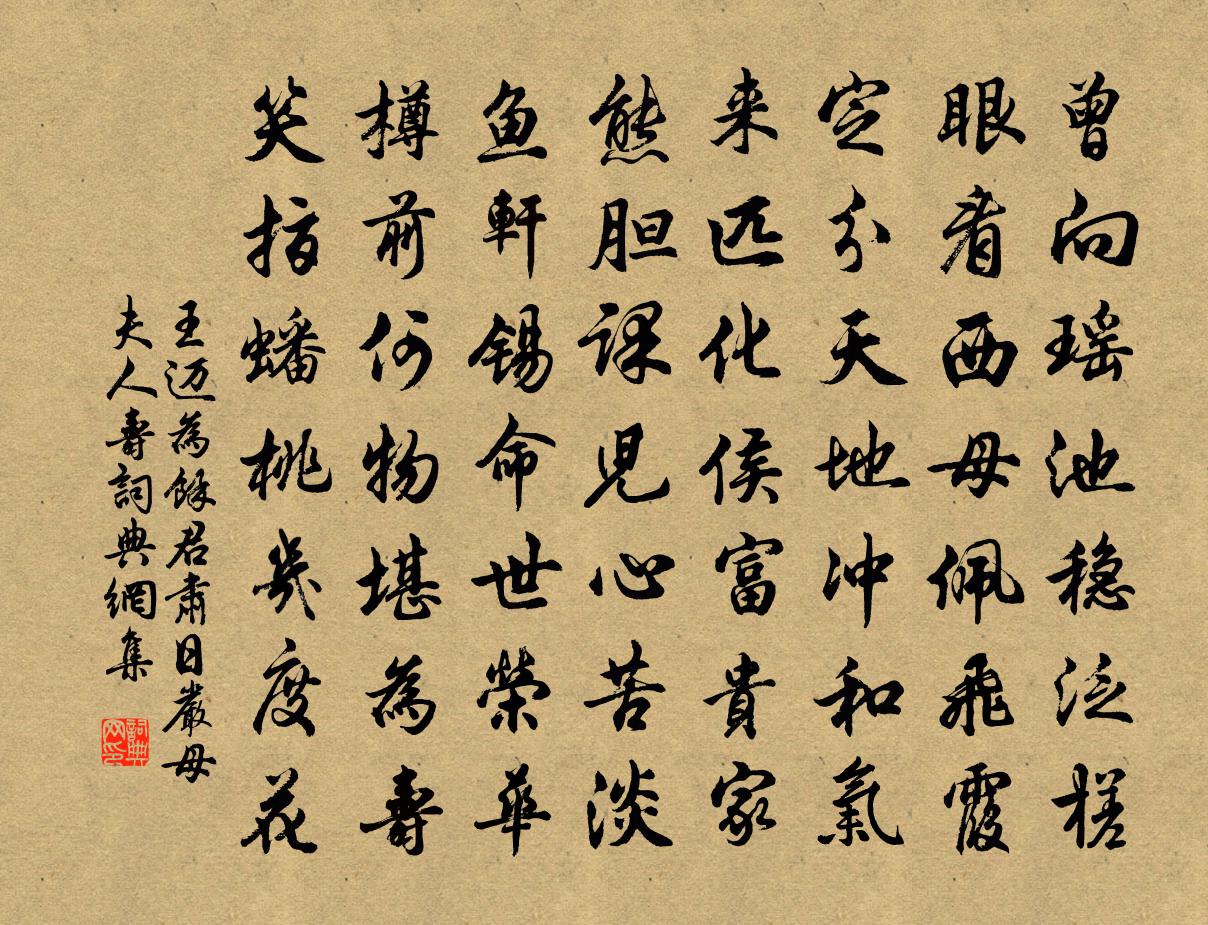 曾向瑶池稳泛槎
眼看西母佩飛霞
定分天地冲和氣
来匹化侯富貴家
熊胆課児心苦淡
鱼軒錫命世榮華
樽前何物堪為壽
笑指蟠桃幾度花
王迈為餘君肅日嚴母
夫人壽詞典網集
詞典網印